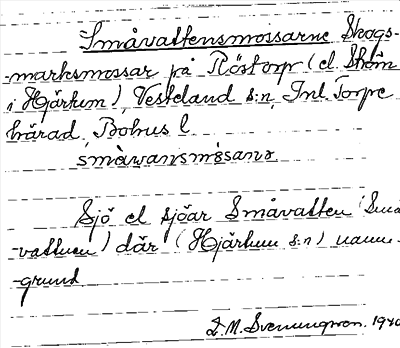 Småvattensmossarne Skogs-
marksmossar på Röstorp (el. Ström
i Hjärtum), Vesteland s:n, Inl. Torpe
härad, Bohus l.
småvansmåsanə
Sjö el sjöar Småvatten (Små
-vattnen) där (Hjärtum s:n) namn-
-grund.
D. M. Svenungsson. 1940